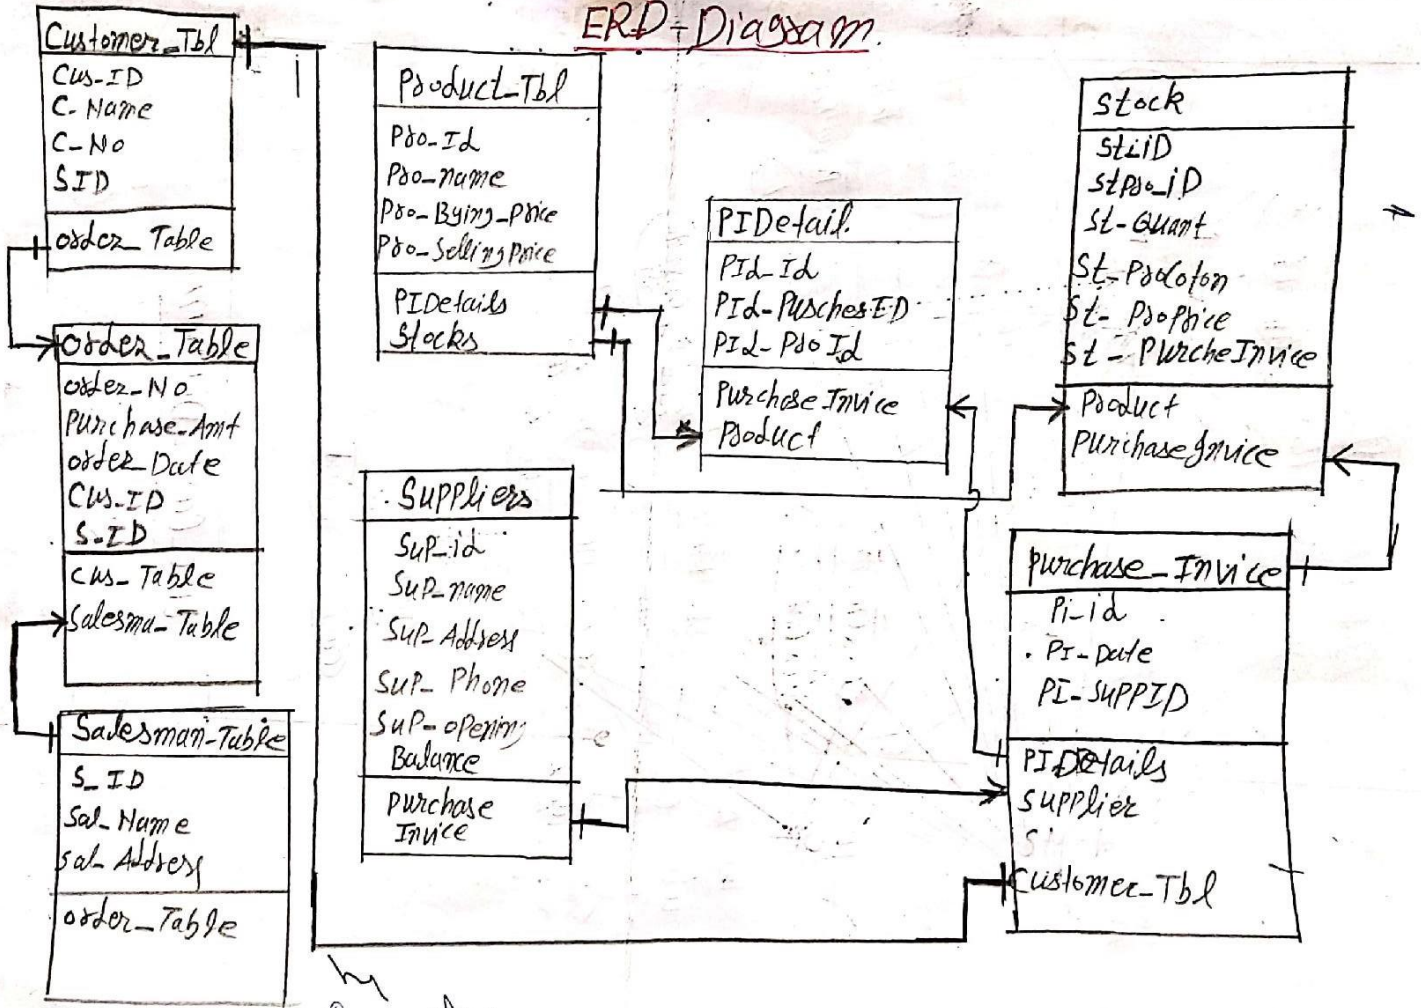 ERD-Diagram.
Customer_Tbl
Cus-ID
C-Name
C-No
SID
order_Table
order_Table
order-No
Purchase-Amt
order Date
Cus-ID
S-ID
Cus-Table
Salesma-Table
Salesman-Table
S_ID
Sal_Name
Sal-Address
order_Table
Product_Tbl
Pro-Id
Pro-name
Pro-Bying-Price
Pro-Selling Price
PIDetails
Stocks
Suppliers
Sup-id
Sup-name
Sup-Address
Sup-Phone
Sup-opening
Balance
Purchase
Invice
PIDetail.
PId-Id
PId-PurchesID
PId-Pro Id
Purchase Invice
Product
Stock
StiiD
StPro_iD
St-Quant
St-
St-ProPrice
St-PurcheInvice
Product
PurchaseInvice
Purchase_Invice
Pi-id
PI-Date
PI-SUPPID
PIDetails
Supplier
St
Customer_Tbl
by